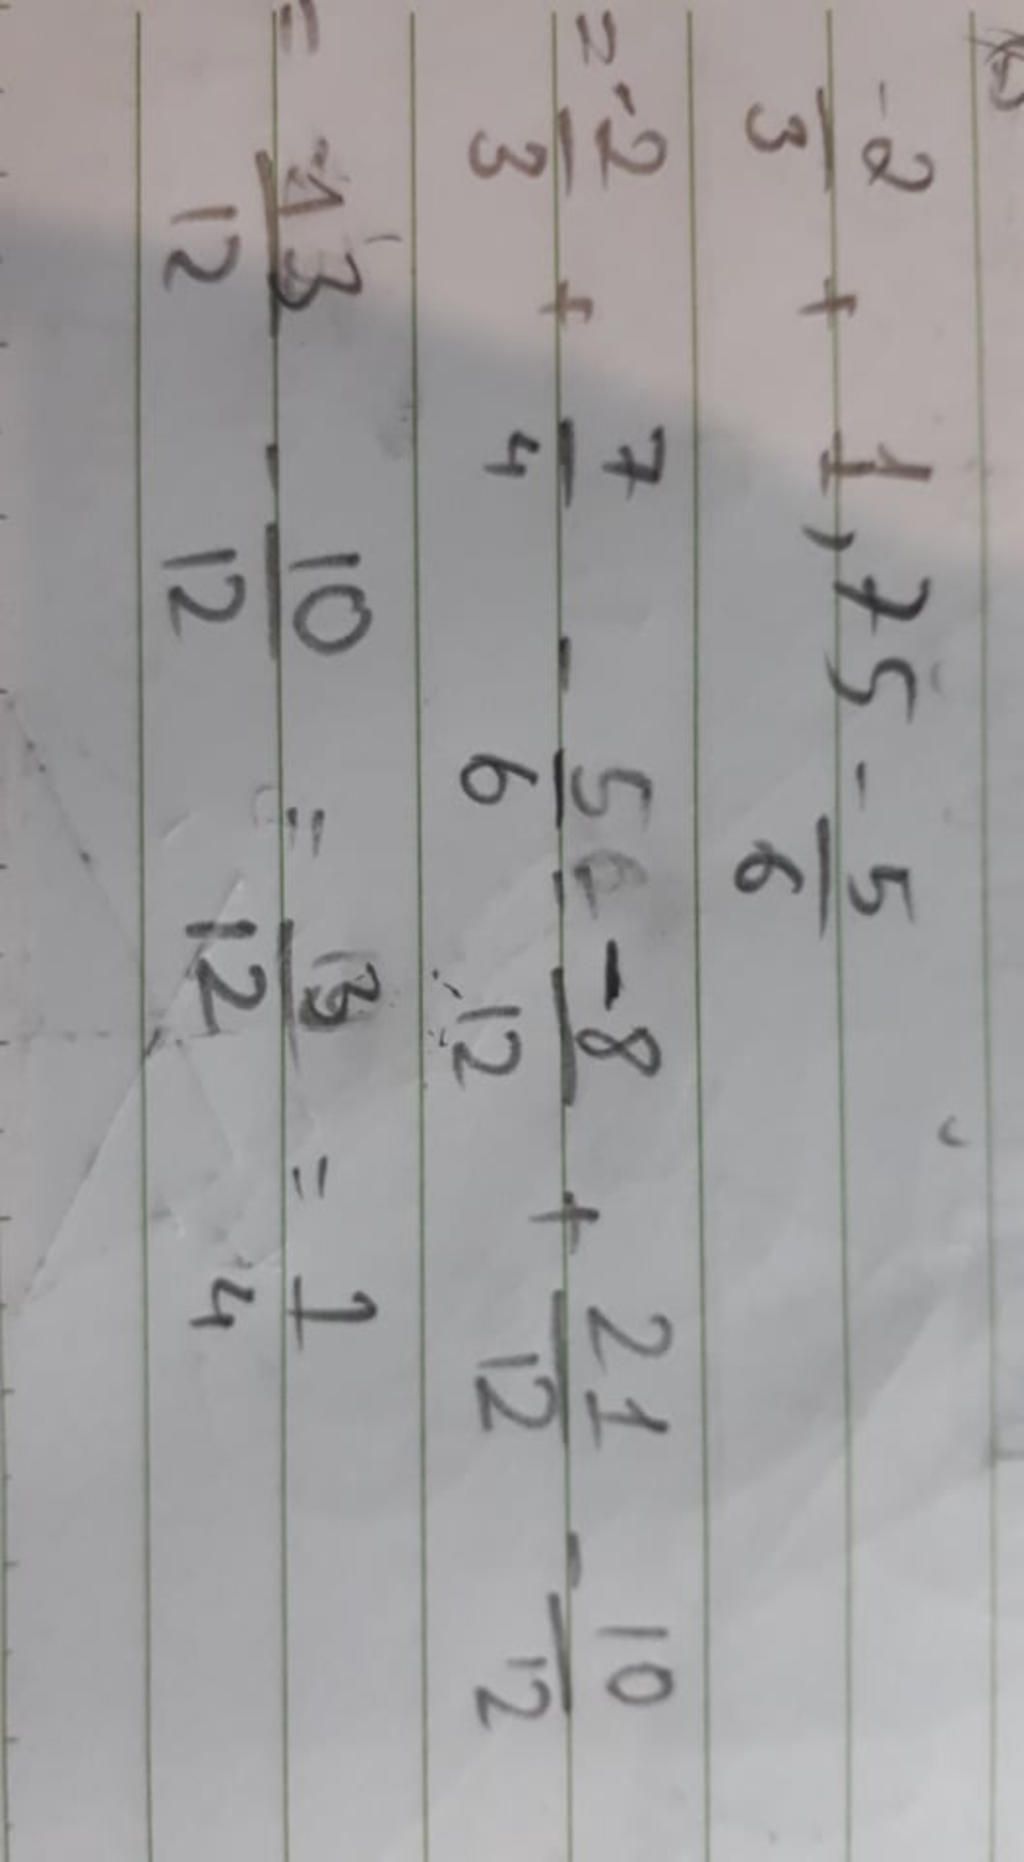 -2/3 + 1,75 - 5/6
= -2/3 + 7/4 - 5/6 = -8/12 + 21/12 - 10/12
= 13/12 - 10/12 = 3/12 = 1/4